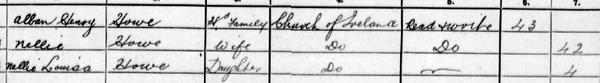 6.
7.
Alban Henry Howe H. Family Church of Ireland Read & write 43
Nellie Howe Wife Do Do 42
Nellie Louisa Howe Daughter Do — 4